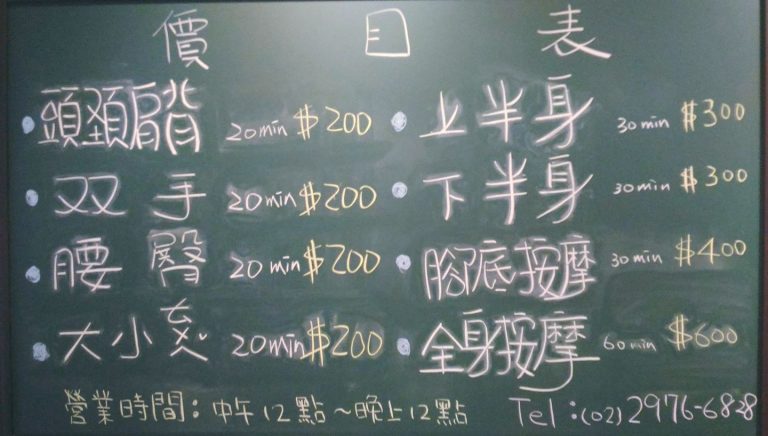 價目表
頭頸肩背 20min $200
上半身 30min $300
双手 20min $200
下半身 30min $300
腰臀 20min $200
腳底按摩 30min $400
大小 20min $200
全身按摩 60min $600
營業時間：中午12點～晚上12點 Tel：(02)2976-6828